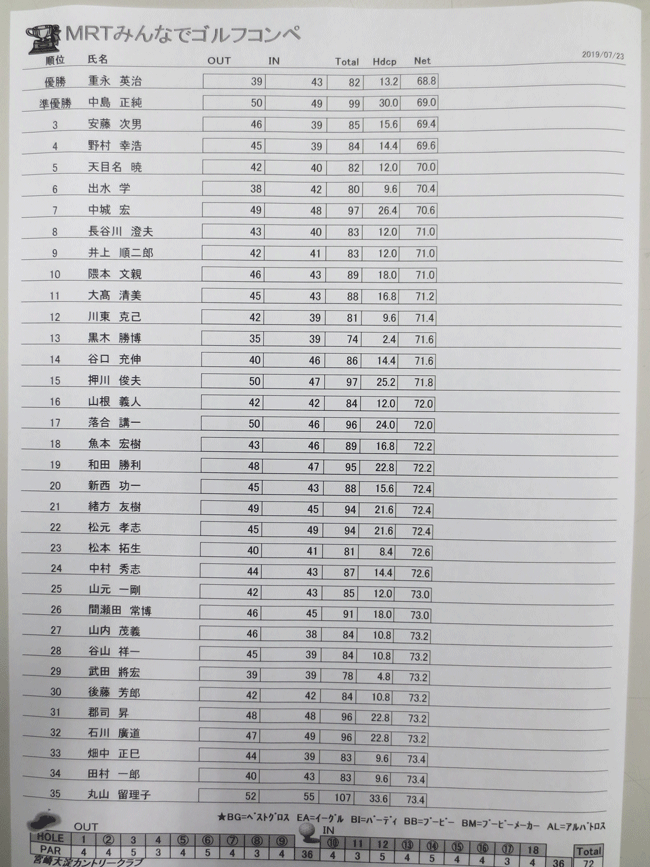 MRTみんなでゴルフコンペ
2019/07/23
順位 氏名 OUT IN Total Hdcp Net
優勝 重永 英治 39 43 82 13.2 68.8
準優勝 中島 正純 50 49 99 30.0 69.0
3 安藤 次男 46 39 85 15.6 69.4
4 野村 幸浩 45 39 84 14.4 69.6
5 天目名 暁 42 40 82 12.0 70.0
6 出水 学 38 42 80 9.6 70.4
7 中城 宏 49 48 97 26.4 70.6
8 長谷川 澄夫 43 40 83 12.0 71.0
9 井上 順二郎 42 41 83 12.0 71.0
10 隈本 文親 46 43 89 18.0 71.0
11 大髙 清美 45 43 88 16.8 71.2
12 川東 克己 42 39 81 9.6 71.4
13 黒木 勝博 35 39 74 2.4 71.6
14 谷口 充伸 40 46 86 14.4 71.6
15 押川 俊夫 50 47 97 25.2 71.8
16 山根 義人 42 42 84 12.0 72.0
17 落合 講一 50 46 96 24.0 72.0
18 魚本 宏樹 43 46 89 16.8 72.2
19 和田 勝利 48 47 95 22.8 72.2
20 新西 功一 45 43 88 15.6 72.4
21 緒方 友樹 49 45 94 21.6 72.4
22 松元 孝志 45 49 94 21.6 72.4
23 松本 拓生 40 41 81 8.4 72.6
24 中村 秀志 44 43 87 14.4 72.6
25 山元 一剛 42 43 85 12.0 73.0
26 間瀬田 常博 46 45 91 18.0 73.0
27 山内 茂義 46 38 84 10.8 73.2
28 谷山 祥一 45 39 84 10.8 73.2
29 武田 將宏 39 39 78 4.8 73.2
30 後藤 芳郎 42 42 84 10.8 73.2
31 郡司 昇 48 48 96 22.8 73.2
32 石川 廣道 47 49 96 22.8 73.2
33 畑中 正巳 44 39 83 9.6 73.4
34 田村 一郎 40 43 83 9.6 73.4
35 丸山 留理子 52 55 107 33.6 73.4
★BG=ベストグロス EA=イーグル BI=バーディ BB=ブービー BM=ブービーメーカー AL=アルバトロス
OUT IN
HOLE 1 ② 3 4 5 ⑥ ⑦ ⑧ ⑨ ⑩ 11 12 ⑬ ⑭ ⑮ ⑯ ⑰ 18 Total
PAR 4 4 5 3 4 5 4 3 4 36 4 3 5 4 5 4 4 3 4 36 72
宮崎大淀カントリークラブ